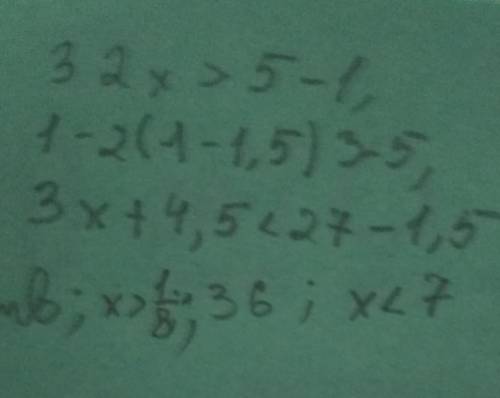 32x > 5 - 1,
1 - 2(1 - 1,5) > 5,
3x + 4,5 < 27 - 1,5
; x > 1/8; 36 ; x < 7